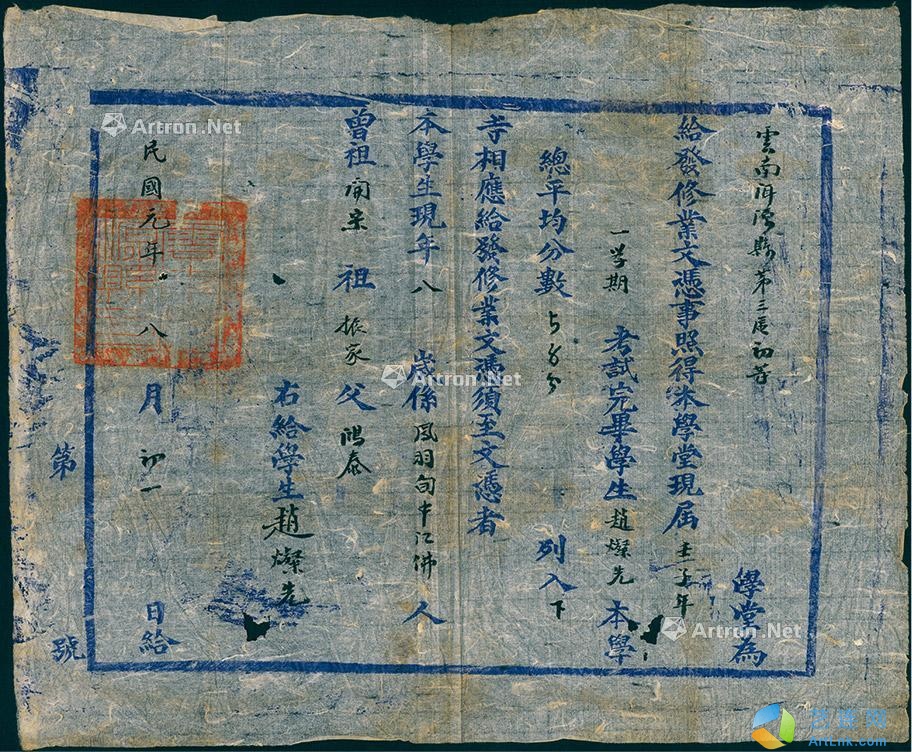 雲南洱源縣第三區初等 學堂為
給發修業文憑事照得本學堂現届壬子年
一学期 考試完畢學生趙燦先 本學
總平均分數 分 列入下
等相應給發修業文憑須至文憑者
本學生現年八 歲係鳳羽甸中江佛 人
曾祖開宗 祖振家 父鴻泰
右給學生趙燦先
民國元年 八 月 初一 日給
第 號
Artron.Net
Artron.Net
Artron.Net
Artron.Net
ArtLnk.com